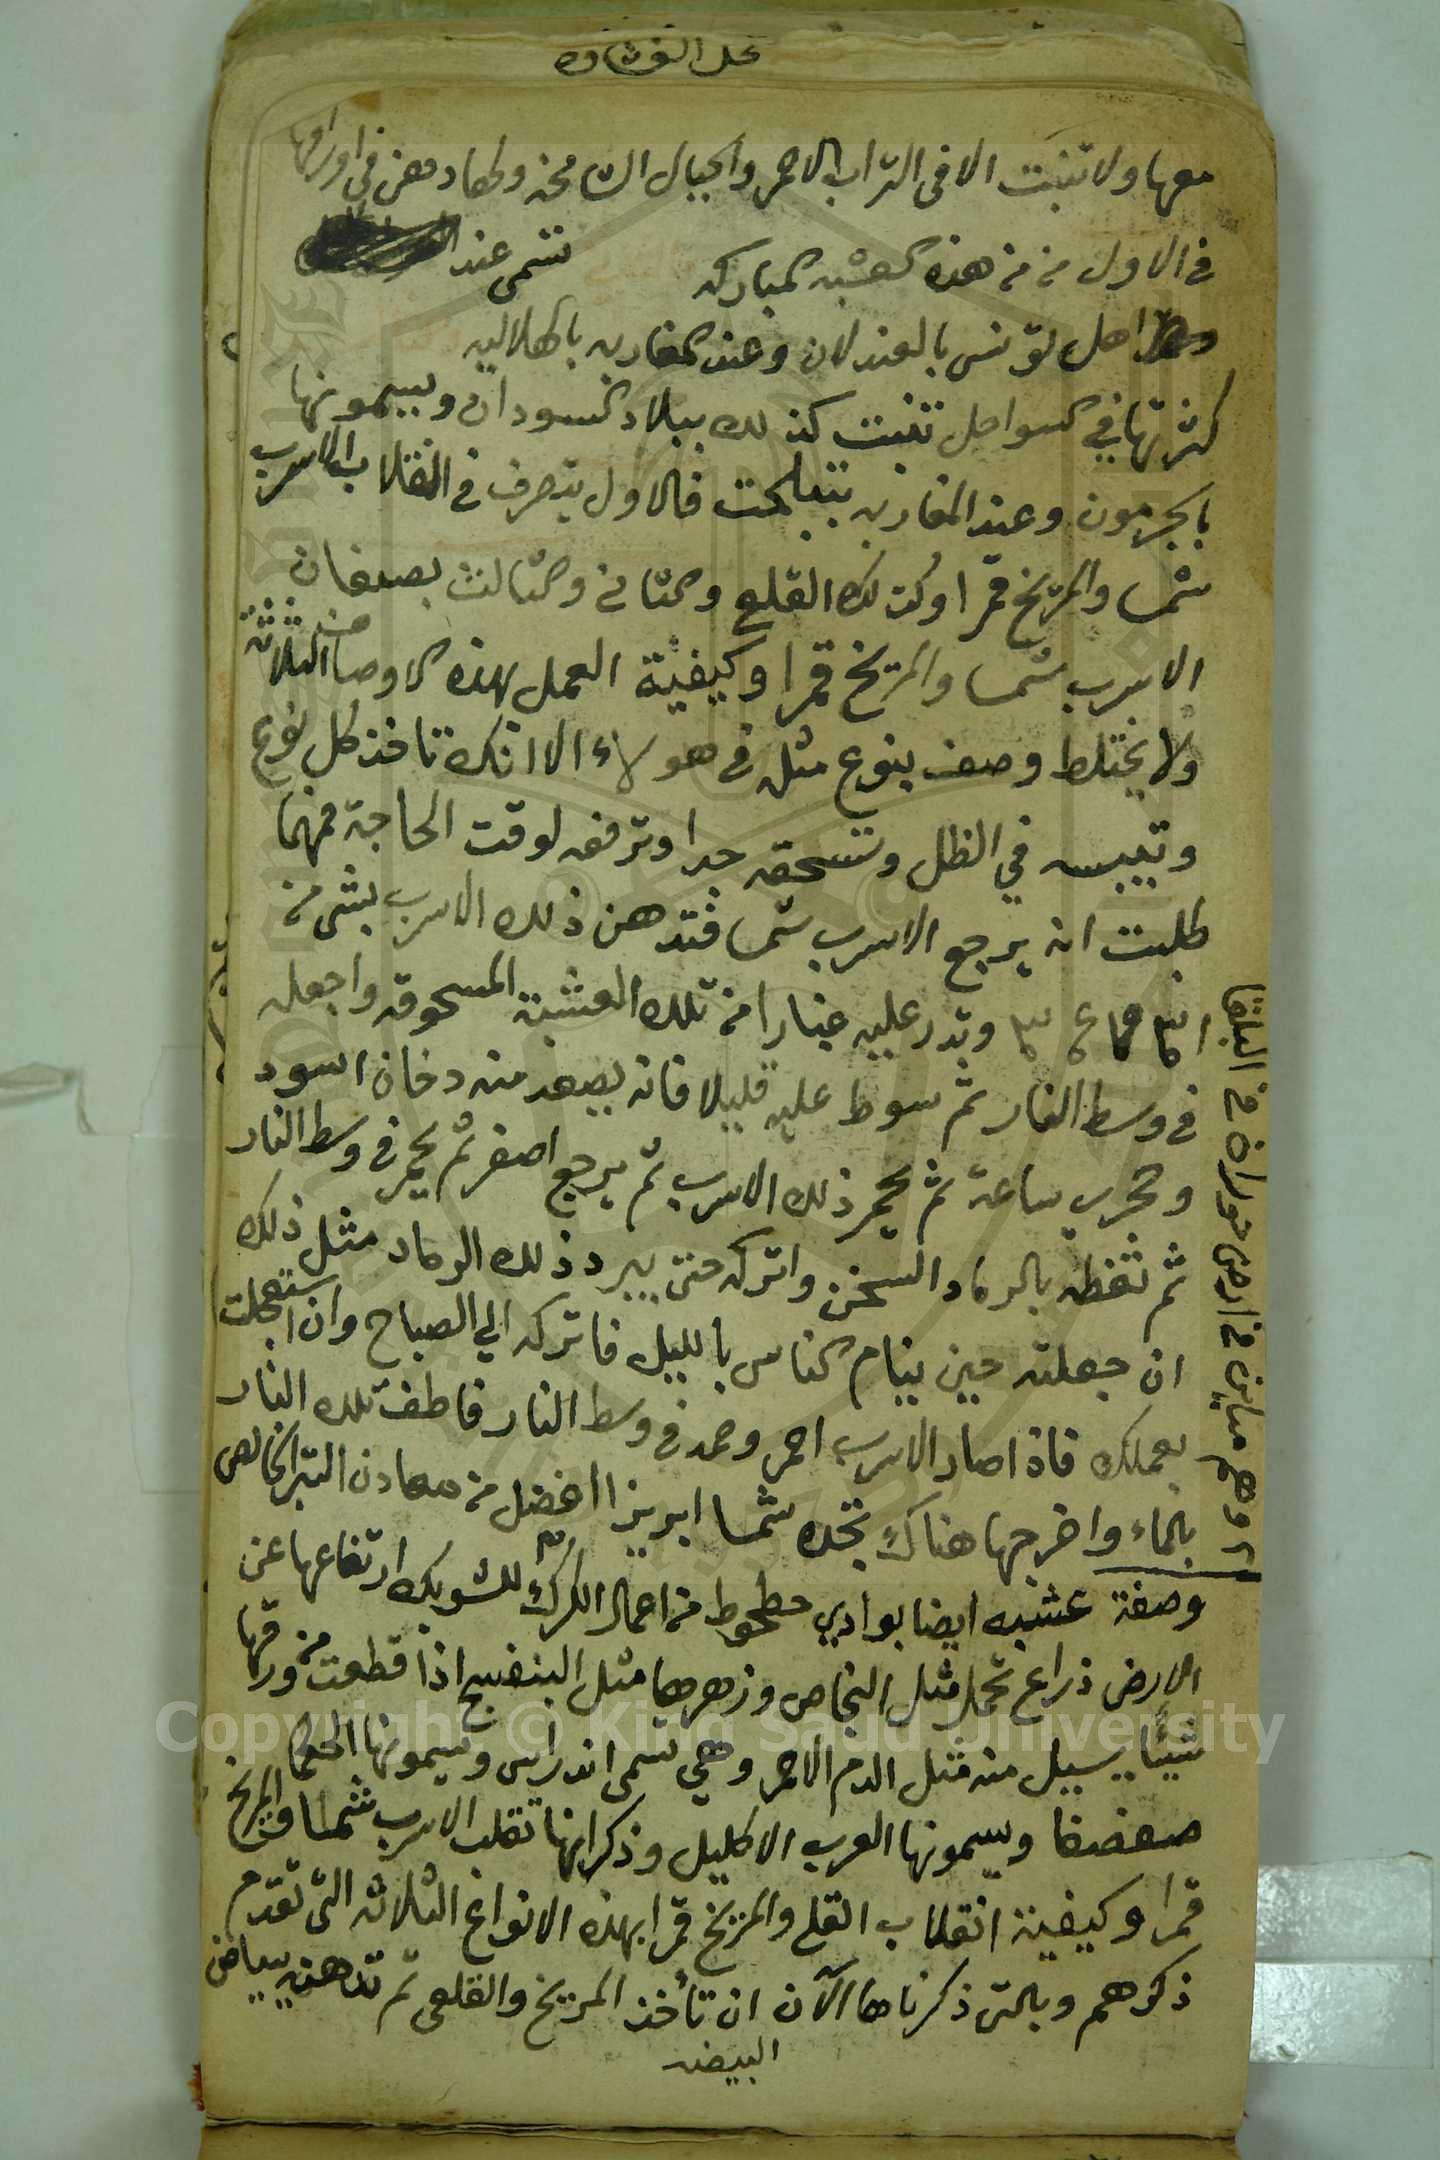 معها ولا تنبت الا فى التراب الاحمر والجبال الشامخه ولها دهن فى اوراقها
فى الاول من من هذه العشبه المباركه تسمى عند
اهل تونس بالعندلان وعند المغاربه بالهلاليه
كثرتها في السواحل تنبت كذلك ببلاد السودان ويسمونها
بالجرمون وعند المغاربه فالاول يتصرف فى انقلاب الاسرب
شمسا والمريخ قمرا وكذلك القلع والثانى والثالث يصبغان
الاسرب شمسا والمريخ قمرا وكيفية العمل بهذه الاوصاف الثلاثة
ولا يختلط وصف بنوع مثله فى هولاء الا انك تاخذ كل نوع
وتيبسه في الظل وتسحقه جدا وترفعه لوقت الحاجة فمهما
طلبت ان يرجع الاسرب شمسا فتدهن ذلك الاسرب بشى من
وتدر عليه غبارا من تلك العشبة المسحوقه واجعله
فى وسط النار ثم سوط عليه قليلا فانه يصعد منه دخان اسود
ساعة ثم يحمر ذلك الاسرب ثم يرجع اصفر ثم يحمر فى وسط النار
ثم تغطه بالرماد السخن واتركه حتى يبرد ذلك الرماد مثل ذلك
ان جعلته حين ينام الناس بالليل فاتركه الي الصباح وان استعجلت
بعملك فاذا صار الاسرب احمر وجمد فى وسط النار فاطف تلك النار
بالماء واخرجها هناك تجده شمسا ابريزا افضل من معادن التبر الخالص
وصفة عشبه ايضا بوادي حطحوط من اعمال الكرك للشوبك ارتفاعها عن
الارض ذراع تحمل مثل النجاص وزهرها مثل البنفسج اذا قطعت من ورقها
شيئا يسيل منه مثل الدم الاحمر وهي تسمى اندراس ويسمونها الحكما
صعضعا ويسمونها العرب الاكليل وذكر انها تقلب الاسرب شمسا والمريخ
قمرا وكيفية انقلاب القلع والمريخ قمرا بهذه الانواع الثلاثه التى تقدم
ذكرهم وبالتى ذكرناها الآن ان تأخذ المريخ والقلعى ثم تدهنه ببياض
البيضه
من ارض حوران من البلقا
Copyright © King Saud University